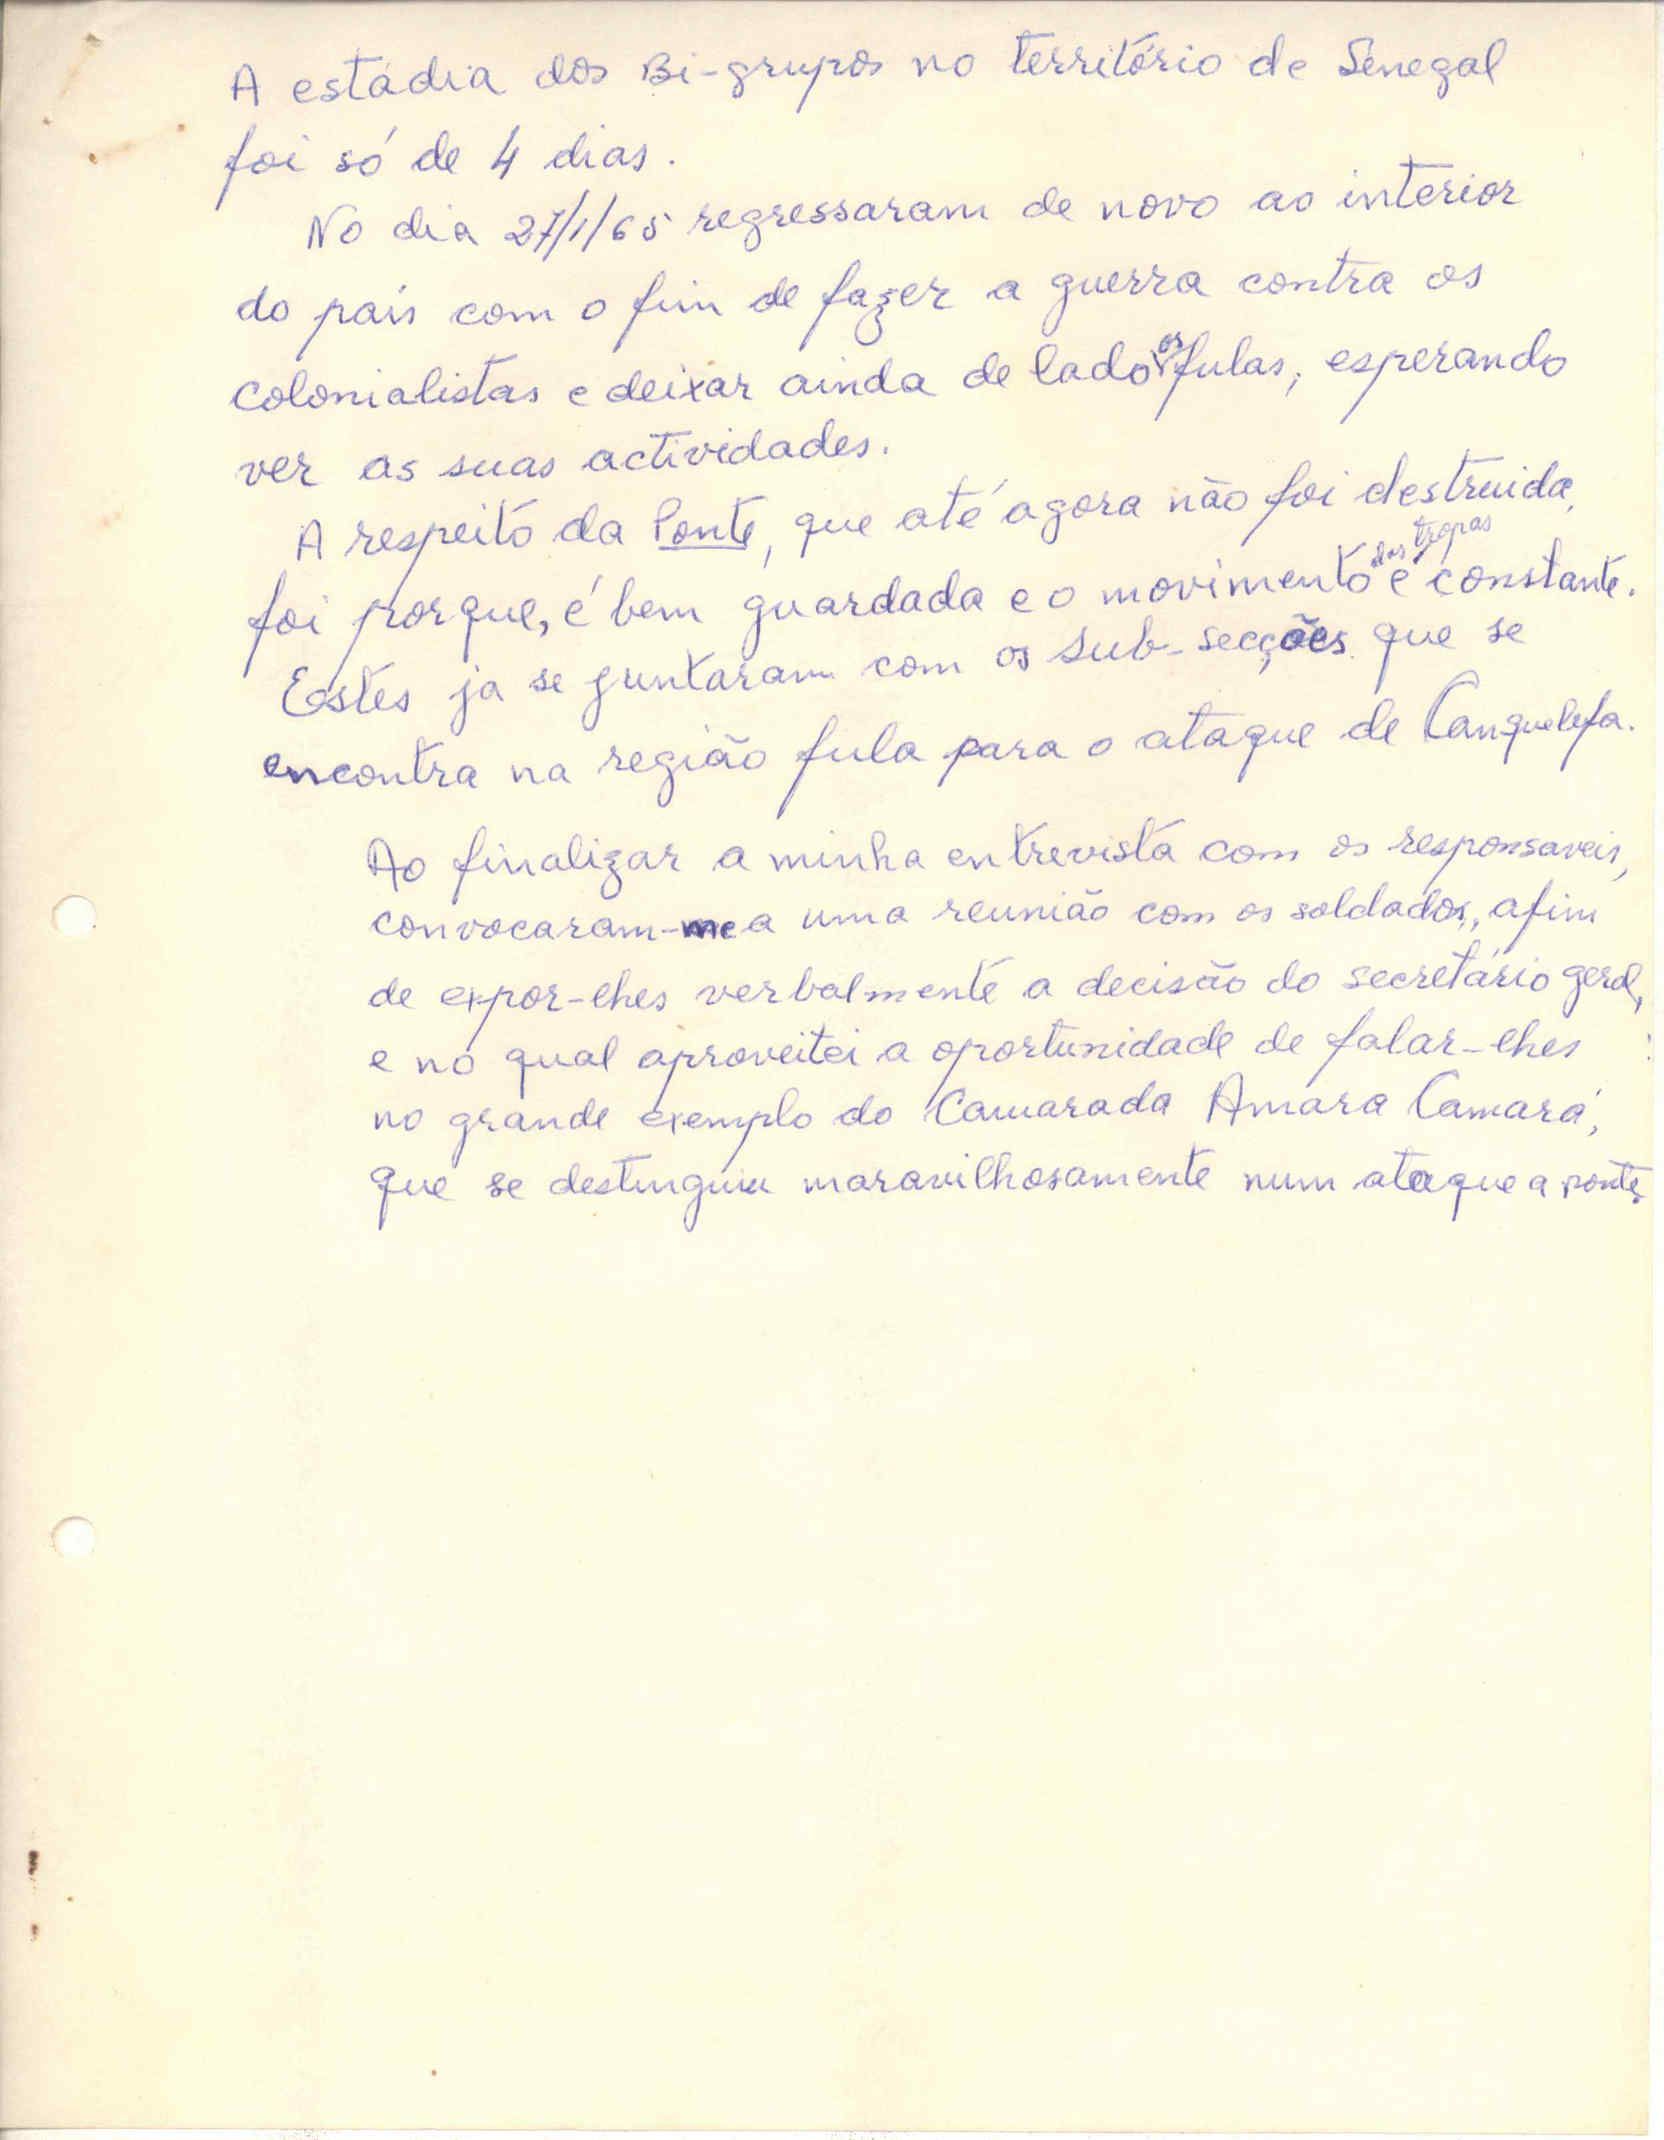 A estádia dos Bi-grupos no território de Senegal
foi só de 4 dias.
No dia 27/1/65 regressaram de novo ao interior
do país com o fim de fazer a guerra contra os
colonialistas e deixar ainda de lado os fulas, esperando
ver as suas actividades.
A respeito da Ponte, que até agora não foi destruida,
foi porque, é bem guardada e o movimento das tropas é constante.
Estes ja se juntaram com os sub-secções que se
encontra na região fula para o ataque de Canquelefa.
Ao finalizar a minha entrevista com os responsaveis,
convocaram-me a uma reunião com os soldados, afim
de expor-lhes verbalmente a decisão do secretário geral,
e no qual aproveitei a oportunidade de falar-lhes
no grande exemplo do Camarada Amara Camará,
que se destinguiu maravilhosamente num ataque a ponte.